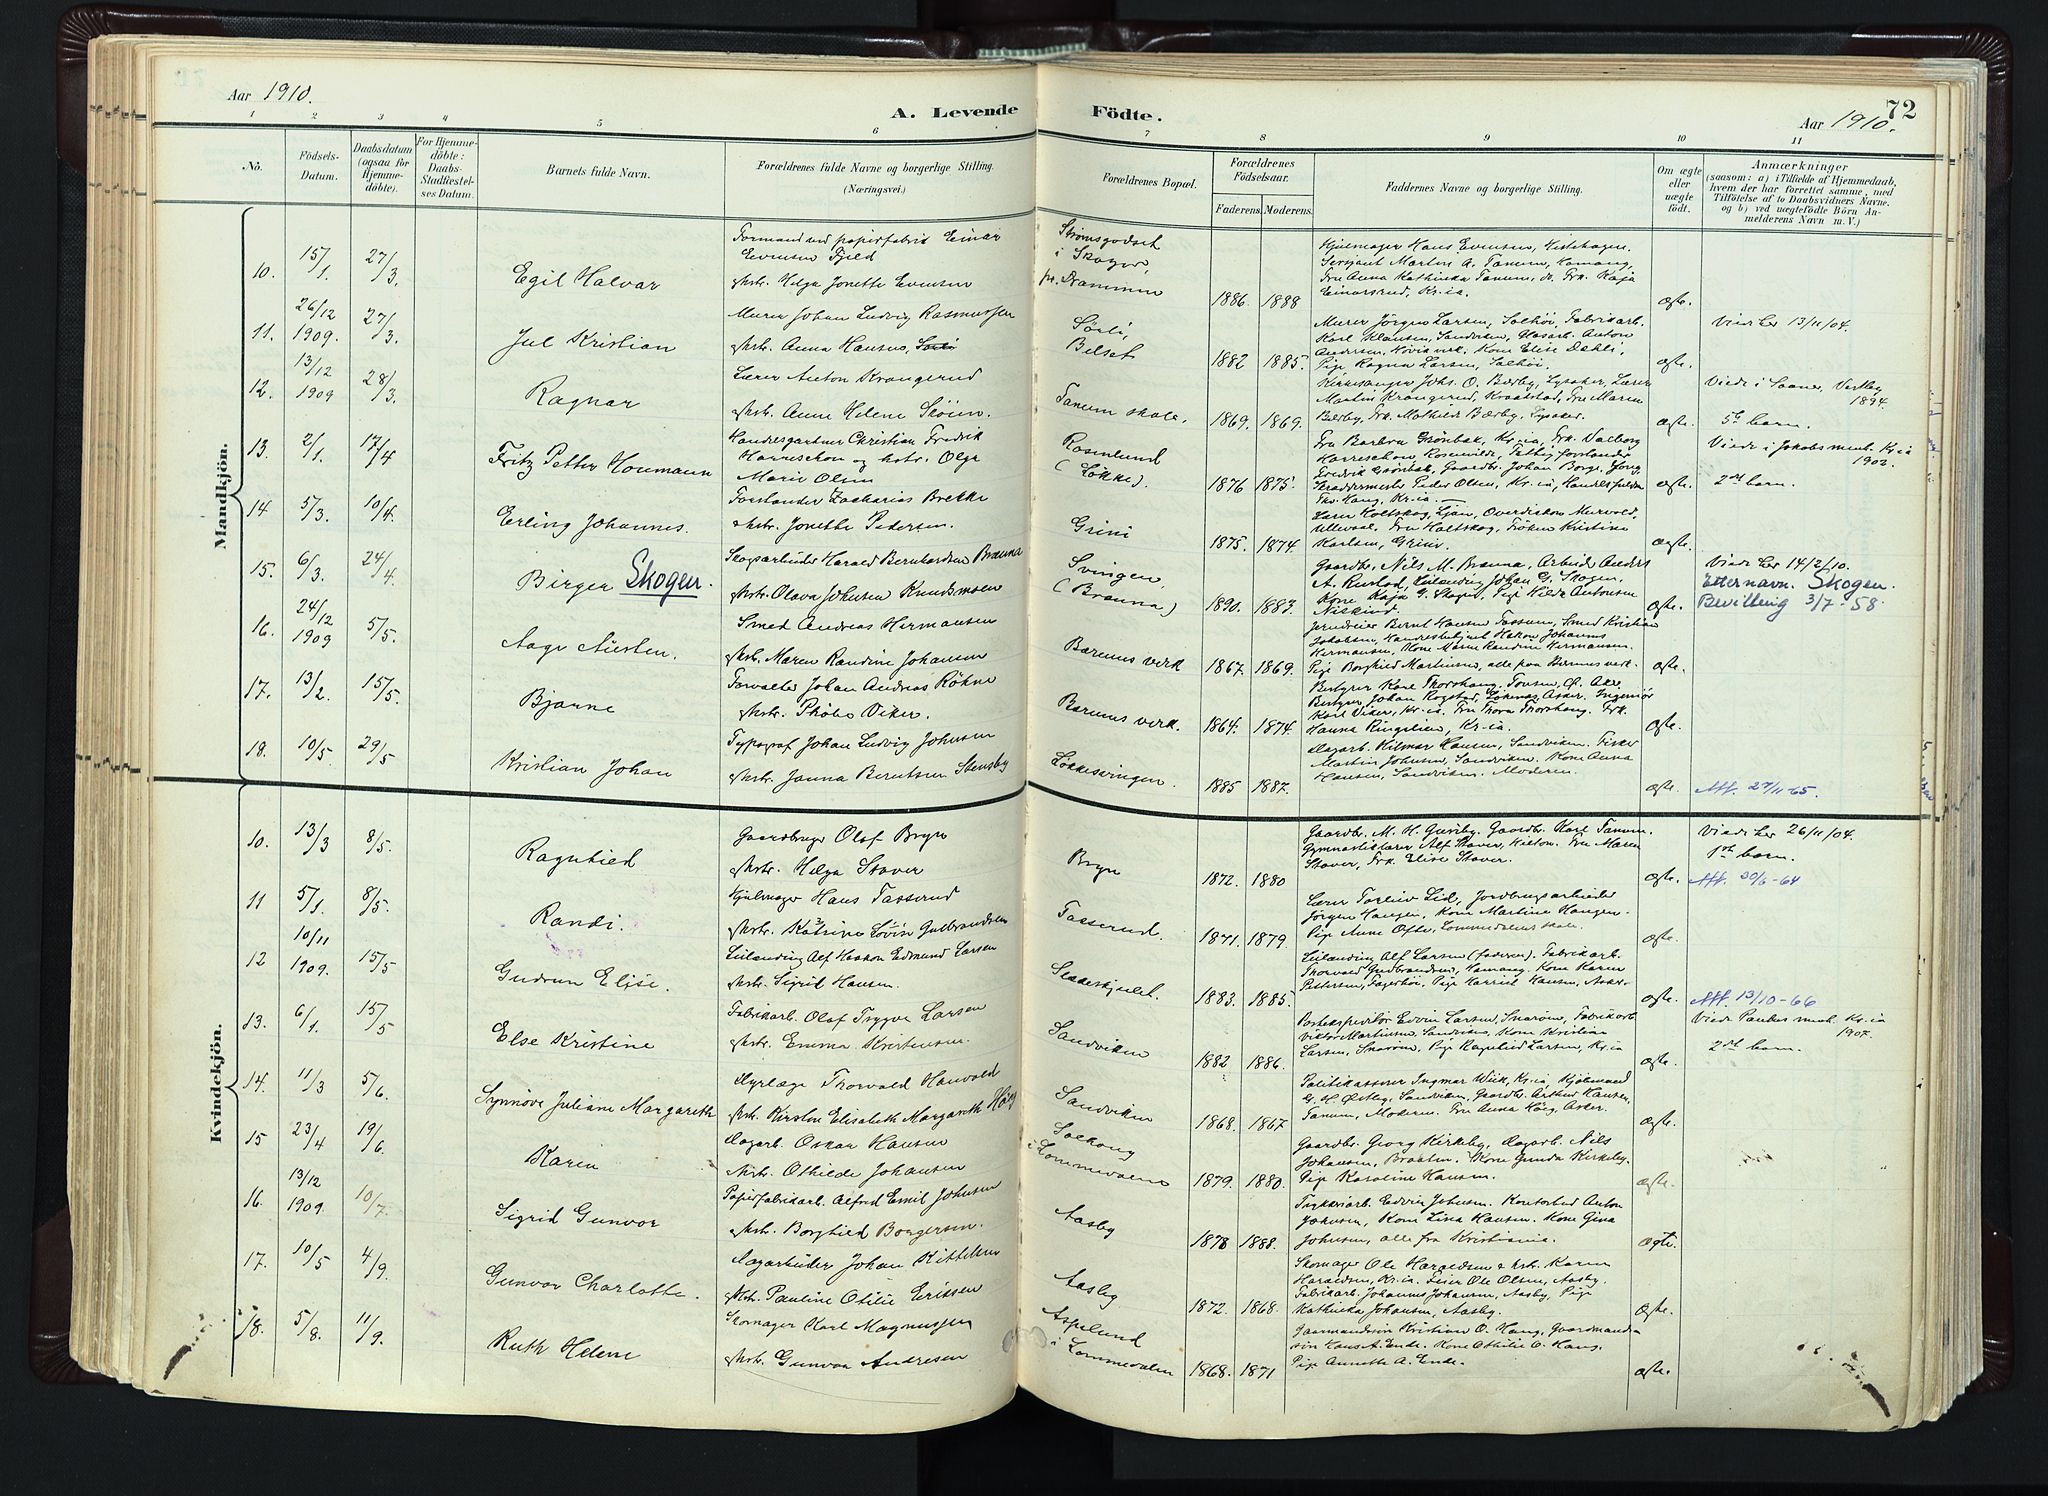 Aar 1910.
A. Levende
Födte.
72
Aar 1910.
1 2 3 4 5 6 7 8 9 10 11
No.
Födsels-
Datum.
Daabsdatum
(ogsaa for
Hjemme-
döbte).
For Hjemme-
döbte:
Daabs-
Stadfæstel-
ses Datum.
Barnets fulde Navn.
Forældrenes fulde Navne og borgerlige Stilling.
(Næringsvei.)
Forældrenes Bopæl.
Forældrenes
Födselsaar.
Faderens. Moderens.
Faddernes Navne og borgerlige Stilling.
Om ægte
eller
uægte
født.
Anmærkninger
(saasom: a) i Tilfælde af Hjemmedaab,
hvem der har forrettet samme, med
Tilföielse af to Daabsvidners Navne.
og b) ved uægtefödte Börn An-
melderens Navn m. V.)
Mandkjön.
10. 15/1. 27/3. Egil Halvar
Formand ved papirfabrik Einar
Evensen Fjeld
Hstr. Helga Jonette Evensen
Strömsgodset
i Skoger,
pr. Drammen
1886. 1888
Hjulmager Hans Evensen,
Sersjant Martin A. Tanum, Hamang,
Fru Anna Kathinka Tanum, Frk. Kaja
Einarsrud, Kr.ia.
ægte.
11. 26/12 1909. 27/3. Jul Kristian
Murer Johan Ludvig Rasmussen
Hstr. Anna Hansen,
Sörli
Belset
1882 1885.
Murer Jörgen Larsen, Solhöi, Fabrikarb.
Karl Klausen, Sandviken, Glasarb. Anton
Andersen, Hövik verk, Kone Elise Dahli,
Pige Ragna Larsen, Solhöi.
ægte.
Viede her 13/11/04.
12. 13/12 1909 28/3. Ragnar
Lærer Anton Krangerud
Hstr. Anne Helene Sköien.
Tanum skole.
1869. 1869.
Kirkesanger Johs. O. Bærby, Lysaker, Lærer
Martin Krangerud, Kraakstad, Fru Maren
Bærby, Frk. Mathilde Bærby, Lysaker.
ægte.
Viede i Saaner, Vestby
1894.
5te barn.
13. 2/1. 17/4 Fritz Petter Houmann
Handelsgartner Christian Fredrik
Harreschou og hstr. Olga
Marie Olsen
Rosenlund
(Lökke).
1876 1875.
Fru Barbra Grönbæk, Kr.ia, Frk. Valborg
Harreschou, Rosenvilde,
Fredrik Grönbæk, Gaardbr. Johan Borge,
Skræddermester Peder Olsen, Kr.ia,
Thv. Haug, Kr.ia.
ægte.
Viede i Jakobs menh. Kr.ia
1902.
2det barn.
14 5/3. 10/4. Erling Johannes.
Forstander Zacharias Brekke
Hstr. Jonette Pedersen.
Grini
1875. 1874.
Lærer Holtskog, Ljan,
Ullevaal, Fru Holtskog, Fröken Kristine
Karlsen, Grini.
ægte.
15. 6/3. 24/4. Birger Skogen.
Skogsarbeider Harald Bernhardsen Brænna
Hstr. Olava Johnsen Knudsmoen
Svingen
(Brænna)
1890. 1883.
Gaardb. Nils M. Brænna, Arbeider Anders
A. Rustad, Leilending Johan G. Skogen,
Kone Kaja G. Skogen, Pige Hilda Antonsen
Niskind.
ægte.
Viede her 14/2/10.
Etternavn. Skogen.
Bevilling 3/7-58.
16. 24/12 1909 5/5. Aage Austen.
Smed Andreas Hermansen
Hstr. Maren Randine Johansen
Bærums verk
1867. 1869.
Jerndreier Bernt Hansen Tasserun, Smed Kristian
Jakobsen, Handelsbetjent Hakon Johannes
Hermansen, Kone Maren Randine Hermansen,
Pige Borghild Martinsen, alle paa Bærums verk.
ægte.
17. 13/2. 15/5. Bjarne
Forvalter Johan Andreas Röhne
Hstr. Phöbe Viker.
Bærums verk.
1864. 1874
Bestyrer Karl Thorshaug, Tonsen, Ö. Aker
Bestyrer Johan Rogstad, Lökenes, Asker. Ingeniör
Karl Viker, Kr.ia. Fru Thora Thorshaug. Frk.
Hanna Ringelien, Kr.ia.
ægte.
18. 10/5. 29/5. Kristian Johan
Typograf Johan Ludvig Johnsen
Hstr. Janna Berntsen Stensby
Løkkesvingen.
1885 1887.
Dagarb. Hilmar Hansen, Sandviken. Fisker
Martin Johnsen, Sandviken. Kone Anna
Hansen, Sandviken. Moderen.
ægte.
Att. 29/11-65.
Kvindekjön.
10. 13/3 8/5. Ragnhild
Gaardbruger Olaf Bryn
Hstr. Helga Staver
Bryn
1872. 1880
Gaardbr. M. H. Gjersby. Gaardbr. Karl Tanum.
Gymnastiklærer Alf Staver, Hilton. Fru Maren
Staver, Frk. Elise Staver.
ægte.
Viede her 26/11/04.
1ste barn.
Att. 30/6-64
11 5/1. 8/5. Randi.
Hjulmager Hans Tasserud
Hstr. Katrine Lovise Gulbrandsen
Tasserud.
1871. 1879.
Lærer Torleiv Lid, Jordbrugsarbeider
Jörgen Haugen, Kone Martine Haugen.
Pige Anne Ofte, Lommedalens skole.
ægte.
12 10/11 1909. 15/5 Gudrun Elise.
Leilending Alf Haakon Edmund Larsen
Hstr. Sigrid Hansen.
Sladeskjulet.
1883. 1885.
Leilending Alf Larsen (faderen). Fabrikarb.
Thorvald Gudbrandsen, Hamang. Kone Karen
Pettersen, Fagerhöi, Pige Harriet Hansen, Asker.
ægte.
Att. 13/10-66
13. 6/1. 15/5 Else Kristine
Fabrikarb. Olaf Trygve Larsen
Hstr. Emma Kristensen.
Sandviken
1882 1886.
Portekspeditör Edvin Larsen, Snaröen, Fabrikarb.
Viktor Martinsen, Sandviken, Kone Kristine
Larsen, Snaröen, Pige Ragnhild Larsen, Kr.ia
ægte.
Viede Paulus menh. Kr.ia
1907.
2det barn.
14. 11/3 5/6. Synnöve Juliane Margareth
Dyrlæge Thorvald Hanvold
Hstr. Kirsten Elisabeth Margareth Höeg
Sandviken
1868. 1867
Politikasserer Ingmar Wiik, Kr.ia, Kjöbmand
G. H. Östby, Sandviken, Gaardbr. Arthur Hansen,
Tanum, Moderen. Fru Anna Höeg, Asker.
ægte.
15 23/4 19/6. Karen
Dagarb. Oskar Hansen
Hstr. Othilde Johansen
Solhaug
i Lommedalens
1879. 1880.
Gaardbr. Georg Kirkeby, Dagarb. Nils
Johansen, Braaten. Kone Gunda Kirkeby.
Pige Karoline Hansen.
ægte.
16. 13/12 1909. 10/7. Sigrid Gunvor
Papirfabrikarb. Alfred Emil Johnsen
Hstr. Borghild Borgersen.
Aasby
1878 1888.
Edvin Johnsen. Kontorbud Anton
Johnsen, Kone Lina Hansen. Kone Gina
Johnsen, alle fra Kristiania.
ægte.
17. 10/5 4/9. Gunvor Charlotte.
Dagarbeider Johan Kittelsen
Hstr. Pauline Otilie Eriksen
Aasby
1872. 1868.
Skomager Ole Haraldsen & hstr. Karen
Haraldsen, Kr.ia. Feier Ole Olsen, Aasby.
Fabrikarb. Johannes Johansen, Aasby, Pige
Kathinka Johansen, Aasby.
ægte.
18. 5/8. 11/9. Ruth Helene
Skomager Karl Magnussen
Hstr. Gunvor Andresen
Aspelund
i Lommedalen
1868. 1871
Gaarmandssön Kristian O. Haug, Gaardmands-
sön Hans A. Ende. Kone Othilie O. Haug.
Pige Annette A. Ende.
ægte.